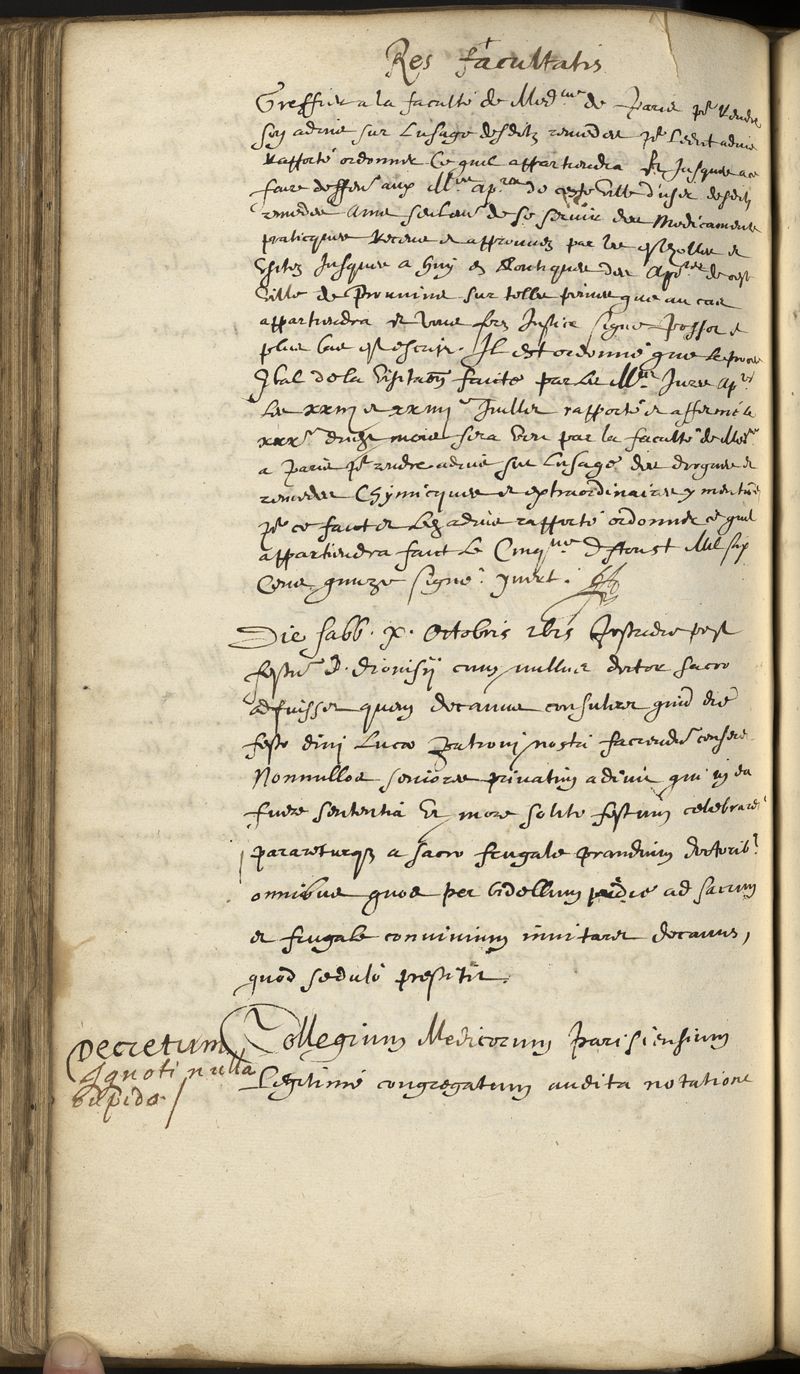 Res facultatis
Greffier a la faculté de Med.ne de Paris pr. Rendre
son advis sur Lusage desditz remedes pr. Ledit advis
Rapporté ordonner Ce quil appartiendra Et Jusques a ce
faire deffen. aux M.res ap.res de ceste ville d'user desditz
remedes ains seulem. de se servir des Medicaments
practicques Receus et approuvez par les et
Usitez Jusques a huy es Boutiques des Apo.res de ceste
ville de Prouvins sur telles peines que au cas
appartiendra et vous ferez Justice signé et
plus bas est escript. Il est ordonné que Le proces
vbal de la Visitaon faicte par Les M.res Jurez ap.res
Les xxiij et xxiiij.e Juillet rapporté et affermé le
xxx.e dudit mois sera veu par la faculté de Med.ne
a Paris pr. rendre advis sur Lusage des drogues et
remedes Chymicques et extraordinaires y mentnes
pr. ce faict et Led advis rapporté ordonner ce quil
appartiendra faict Le Cinq.me D'Aoust Mil six
Cens quinze signé. Yvert.
Die sabb. X. Octobris 1615 Postridie post
festu D. Dionisij cum nullus doctor sacro
adfuisset quem decanus consuleret quid die
festo divi Lucæ Patroni nostri faciendu censeret
Nonnullos seniores privatim adivit qui in ea
fuere sententia Ut more solito festum celebraret
parareturq; a sacro frugale prandium doctorib.
omnibus quos per bidellum pridie ad sacrum
et frugale convivium invitaret decanus,
quod sedulo prestitit.
Decretum
Ignoti nulla
cupido
Collegium Medicorum Parisiensium
Legitime congregatum audita notatione